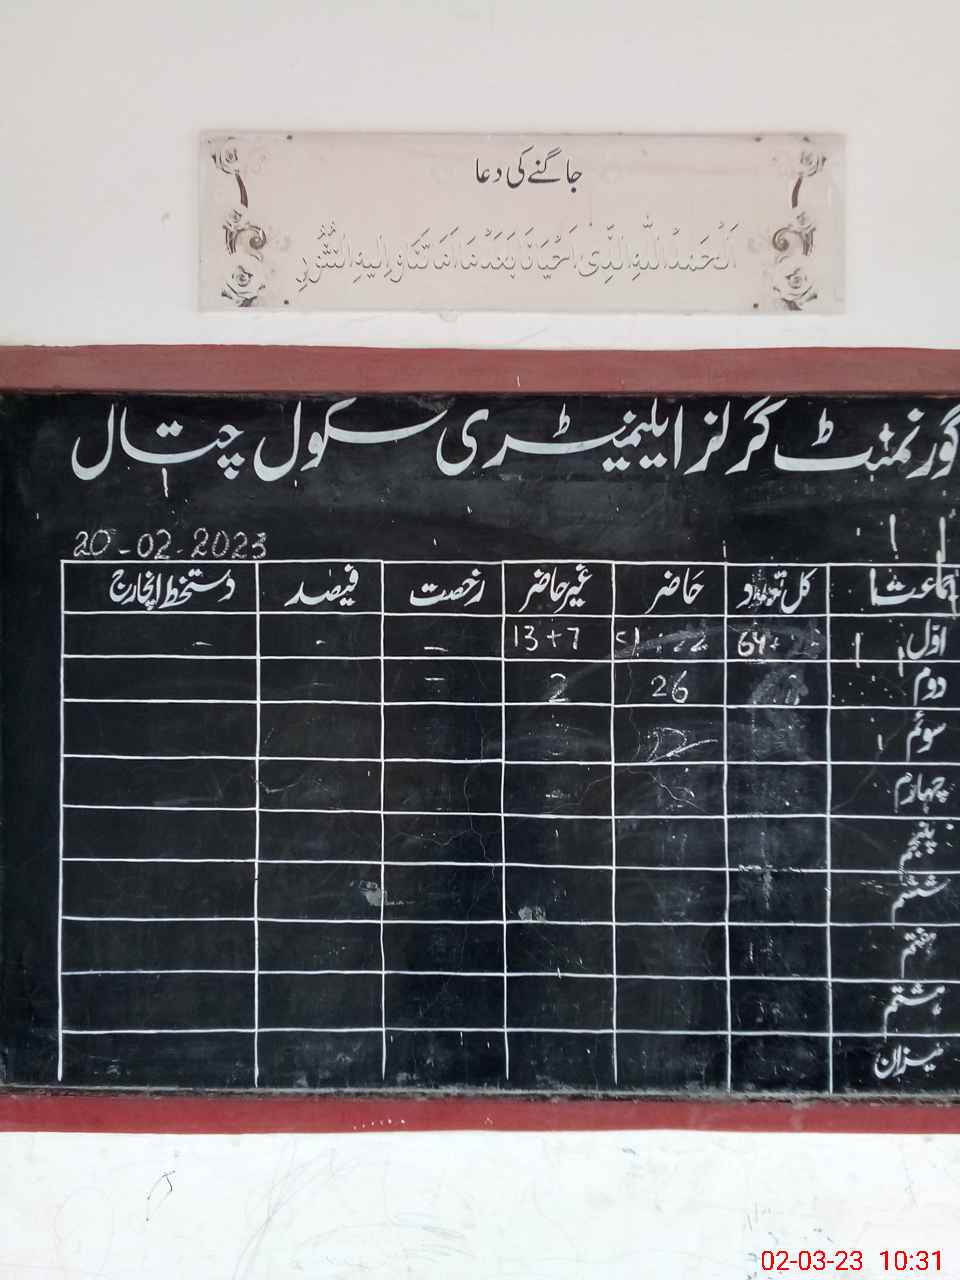 جاگنے کی دعا
اَلْحَمْدُ لِلّٰهِ الَّذِیْ اَحْیَانَا بَعْدَ مَا اَمَاتَنَا وَاِلَیْهِ النُّشُوْر
گورنمنٹ گرلز ایلیمنٹری سکول چتال
20-02-2023
جماعت کل تعداد حاضر غیر حاضر رخصت فیصد دستخط انچارج
اوّل 64+ 13+7 –
دوم 26 2 –
سوئم
چہارم
پنجم
ششم
ہفتم
ہشتم
میزان
02-03-23 10:31